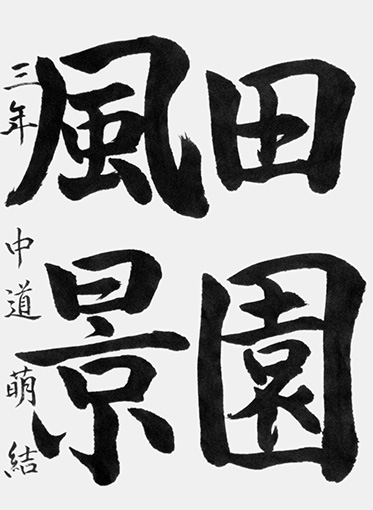 田園
風景
三年 中道萌結